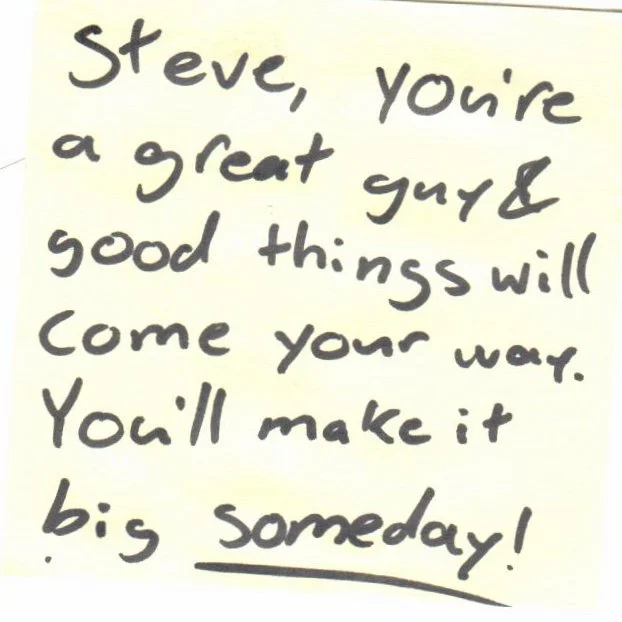 Steve, you're
a great guy &
good things will
come your way.
You'll make it
big someday!